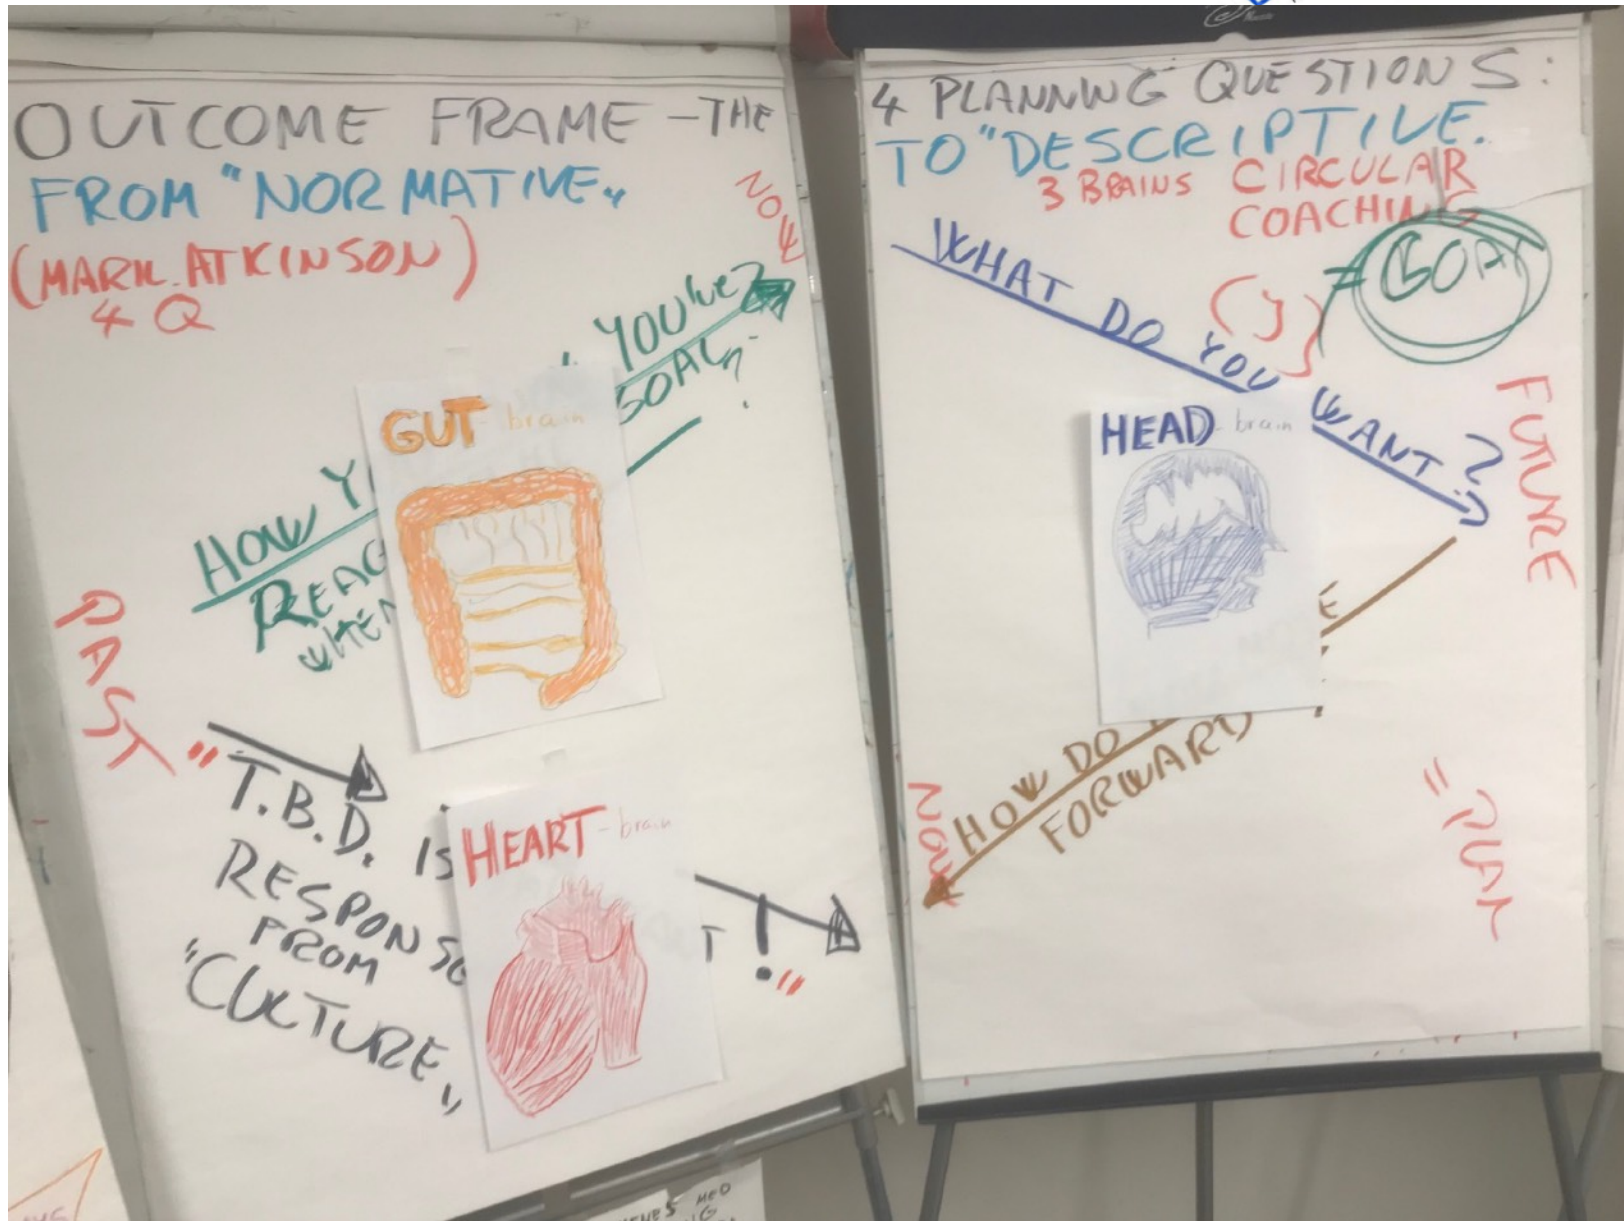 OUTCOME FRAME - THE
FROM "NORMATIVE"
(MARK. ATKINSON)
4 Q
NOW
HOW
YOU'VE
REAC
GOAL
WHEN
GUT - brain
PAST
"T.B.D. IS
RESPONSE
FROM
"CULTURE"
HEART - brain
T!"
4 PLANNING QUESTIONS:
TO "DESCRIPTIVE"
3 BRAINS CIRCULAR
COACHING
= GOAL
WHAT DO YOU WANT?
FUTURE
HEAD - brain
HOW DO
FORWARD
NOW
= PLAN
MED